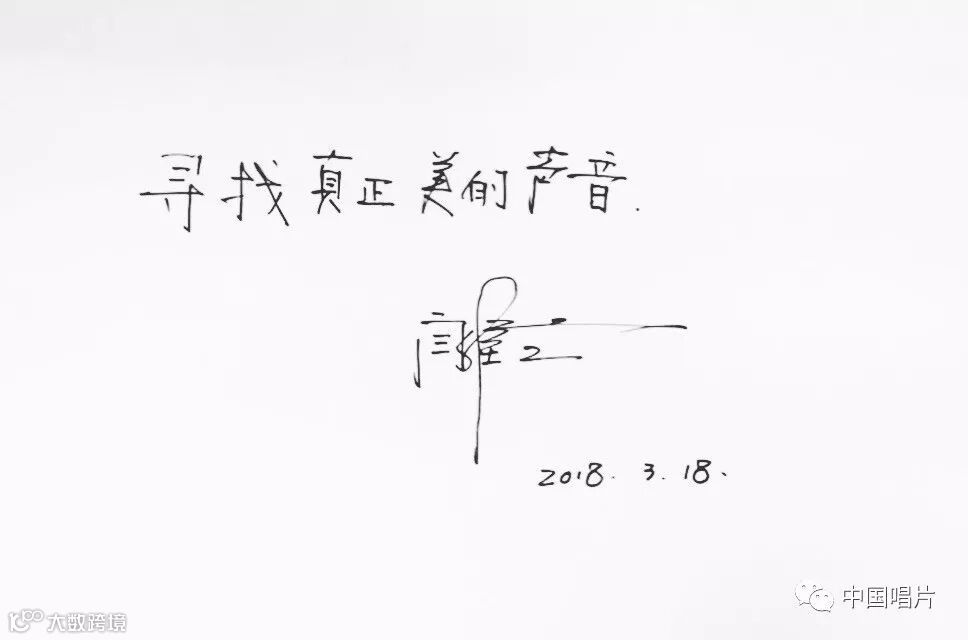 寻找真正美的声音.
2018. 3. 18.
中国唱片
大数跨境